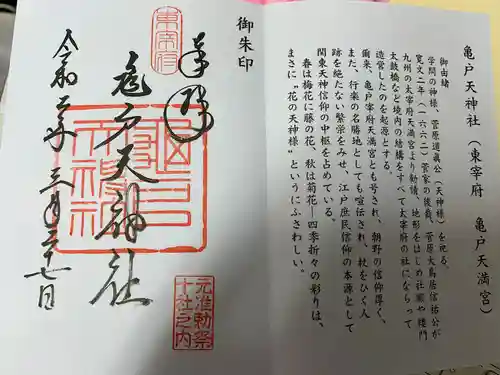 亀戸天神社(東宰府 亀戸天満宮)
御由緒
学問の神様、菅原道真公(天神様)を祀る。
寛文二年(一六六二)菅家の後裔、菅原大鳥居信祐公が
九州の太宰府天満宮より勧請、地形をはじめ社殿や楼門
太鼓橋など境内の結構をすべて太宰府の社にならって
造営したのを起源とする。
爾来、亀戸宰府天満宮とも号され、朝野の信仰厚く、
また、行楽の名勝地としても喧伝され、杖をひく人
跡を絶たない繁栄をみせ、江戸庶民信仰の本源として
関東天神信仰の中枢を占めている。
春は梅花に藤の花、秋は菊花―四季折々の彩りは、
まさに"花の天神様"というにふさわしい。
御朱印
東宰府
奉拝
亀戸天神社
令和二年三月二十七日
元准勅祭
十社之内